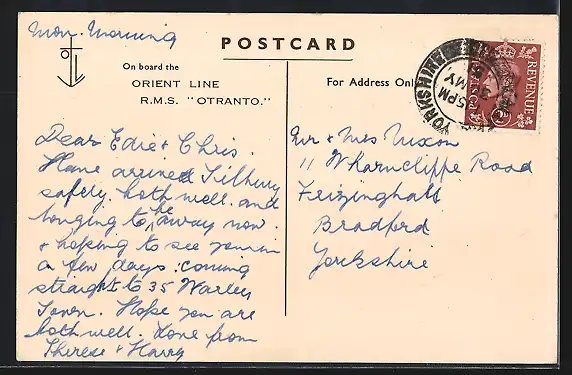 Mon. Morning
POSTCARD
On board the
ORIENT LINE
R.M.S. "OTRANTO."
For Address Only
YORKSHIRE
PM
MY
POSTAGE
REVENUE
Dear Edie & Chris.
Have arrived Tilbury
safely. both well. and
longing to be away now.
& hoping to see you in
a few days. coming
straight to 35 Warley
Town. Hope you are
both well. Love from
Therese & Harry
Mr & Mrs Nixon
11 Wharncliffe Road
Frizinghall
Bradford
Yorkshire